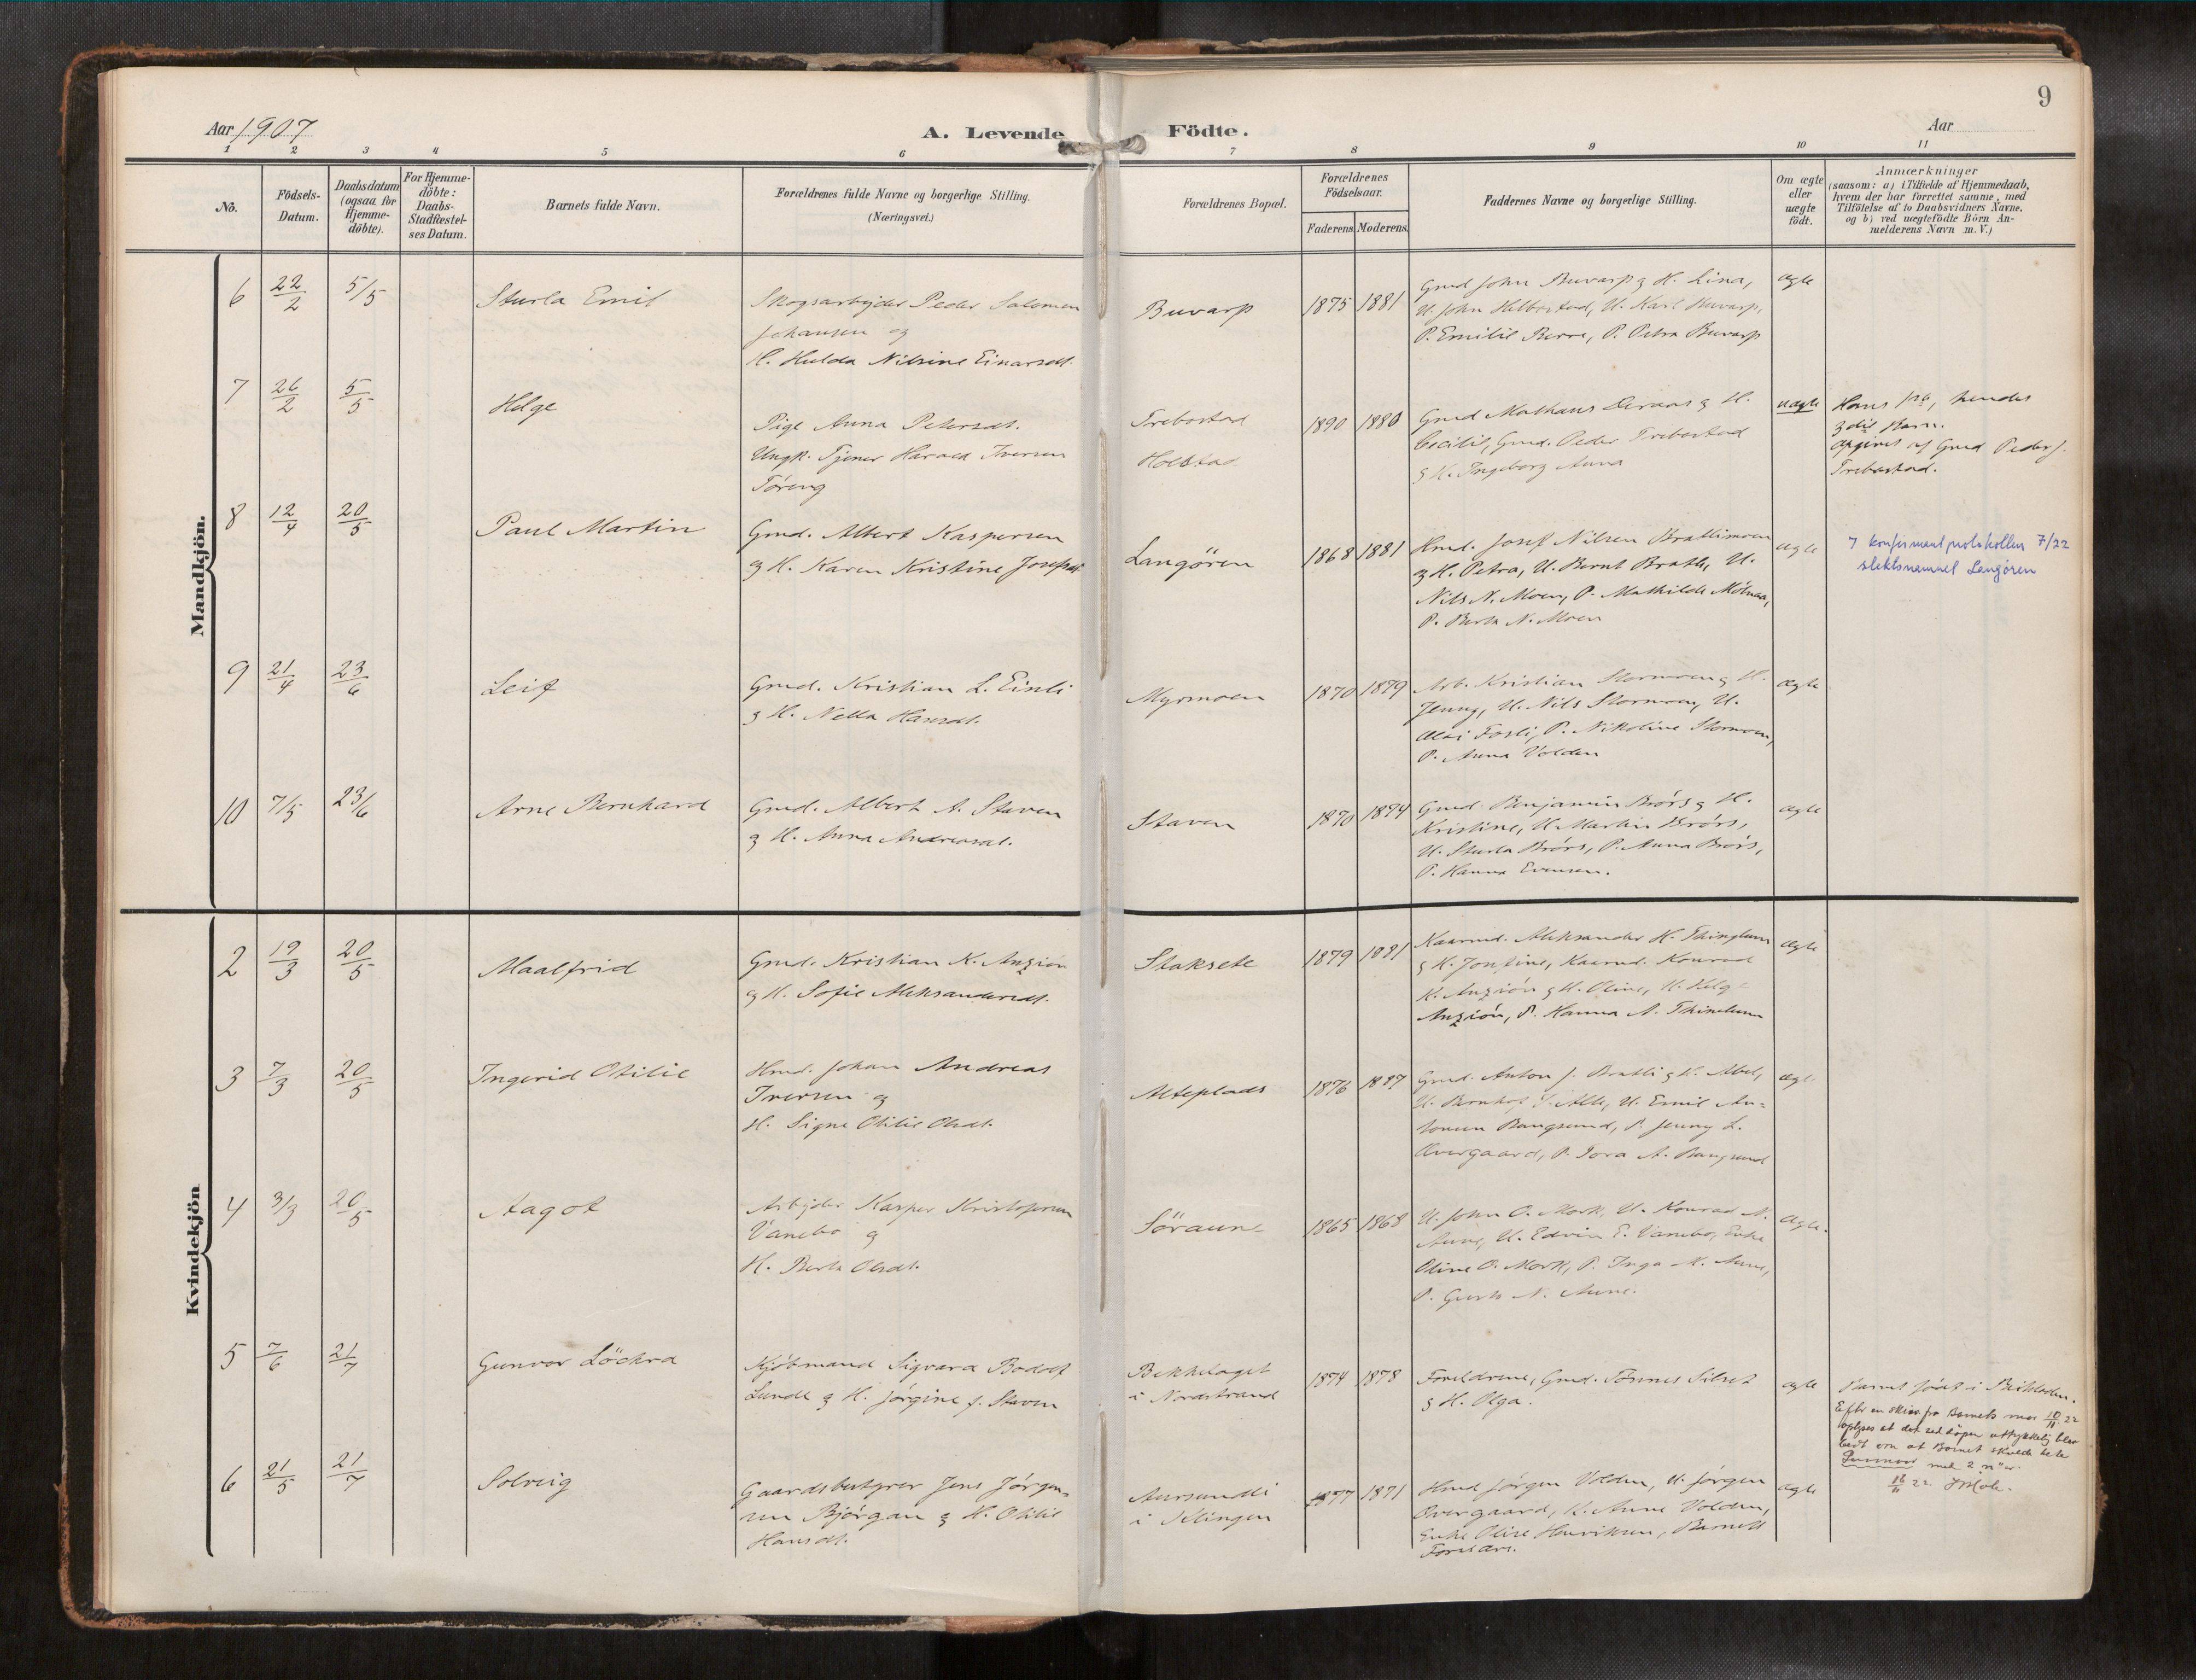 9
Aar 1907
A. Levende Födte.
Aar
1 2 3 4 5 6 7 8 9 10 11
No.
Födsels-
Datum.
Daabsdatum
(ogsaa for
Hjemme-
döbte).
For Hjemme-
döbte:
Daabs-
Stadfæstel-
ses Datum.
Barnets fulde Navn.
Forældrenes fulde Navne og borgerlige Stilling.
(Næringsvei.)
Forældrenes Bopæl.
Forældrenes
Födselsaar.
Faderens Moderens
Faddernes Navne og borgerlige Stilling.
Om ægte
eller
uægte
födt.
Anmærkninger
(saasom: a) i Tilfælde af Hjemmedaab,
hvem der har forrettet samme, med
Tilföielse af to Daabsvidners Navne,
og b) ved uægtefödte Börn An-
melderens Navn m. V.)
Mandkjön.
6 22/2 5/5
Sturla Emil
Skogsarbejder Peder Salomon
Johansen og
H. Hulda Nilsine Einarsdt.
Buvarp
1875 1881
Gmd John Buvarp & H. Lina,
U. John Hilbostad, U. Karl Buvarp,
P. Emilie Burre, P. Petra Buvarp
ægte
7 26/2 5/5
Helge
Pige Anna Petersdt.
Ungk. Tjener Harald Iversen
Töring
Trebostad
Holstad
1890 1880
Gmd Mathæus Aeraas & H.
Cecilie, Gmd. Peder Trebostad
& H. Ingeborg Anna
uægte
Hans 1ste, hendes
3die Barn.
Opgivet af Gmd Peder J.
Trebostad.
8 12/4 20/5
Paul Martin
Gmd. Albert Kaspersen
og H. Karen Kristine Josefsdt
Langören
1868 1881
Hmd. Josef Nilsen Brattimoen
og H. Petra, U. Bernt Bratli, U.
Nils N. Moen, P. Mathilde Mölnaa,
P. Berta N. Moen
ægte
I konfirmantprotokollen 7/22
slektsnamnet Langören
9 21/4 23/6
Leif
Gmd. Kristian L. Einli
& H. Netta Hansdt.
Myrmoen
1870 1879
Arb. Kristian Stormoen & H.
Jenny, U. Nils Stormoen, U.
Fosli, P. Nikoline Stormoen,
P. Anna Volden
ægte
10 7/5 23/6
Arne Bernhard
Gmd. Albert A. Staven
& H. Anna Andreasdt.
Staven
1870 1874
Gmd. Benjamin Brörs & H.
Kristine, U. Martin Brörs,
U. Sturla Brörs, P. Anna Brörs,
P. Hanna Evensen.
ægte
Kvindekjön
2 19/3 20/5
Maalfrid
Gmd. Kristian K. Anziön
og H. Sofie Aleksandersdt.
Staksete
1879 1881
Kaarmd. Aleksander H. Thinglum
& H. Josefine, Kaarmd. Konrad
K. Anziön & H. Oline, U. Helge
Anziön, P. Hanna A. Thinglum
ægte
3 7/3 20/5
Ingerid Otilie
Hmd. Johan Andreas
Iversen og
H. Signe Otilie Olsdt.
Alteplads
1876 1887
Gmd. Anton J. Bratli & H. Abel,
U. Bernhof J. Alte, U. Emil An-
tonsen Bangsund, P. Jenny L.
Overgaard, P. Tora A. Bangsund
ægte
4 3/3 20/5
Aagot
Arbejder Kasper Kristofersen
Vanebo og
H. Berta Olsdt.
Söraune
1865 1868
U. John O. Mork, U. Konrad N.
Aune, U. Edvin E. Vanebo, Enke
Oline O. Mork, P. Inga M. Aune,
P. Gusta N. Aune.
ægte.
5 7/6 21/7
Gunvor Löchra
Kjöbmand Sigvard Bodolf
Lunde & H. Jörgine f. Staven
Bekkelaget
i Nordstrand
1874 1878
Forældrene, Gmd. Tönnes Silset
& H. Olga.
ægte
Barnet födt i
Efter en skriv. fra Barnets mor 10/11 22
oplyses at det ved döpen uttrykkelig blev
bedt om at Barnet skulde hete
Gunnvor med 2 "n"er.
16/11 22.
6 21/5 21/7
Solveig
Gaardsbestyrer Jens Jörgen-
sen Björgan & H. Otilie
Hansdt.
Aursundli
i Klingen
1877 1871
Hmd Jörgen Volden, U. Jörgen
Overgaard, K. Anne Volden,
Enke Olise Henriksen, Barnets
Forældre.
ægte